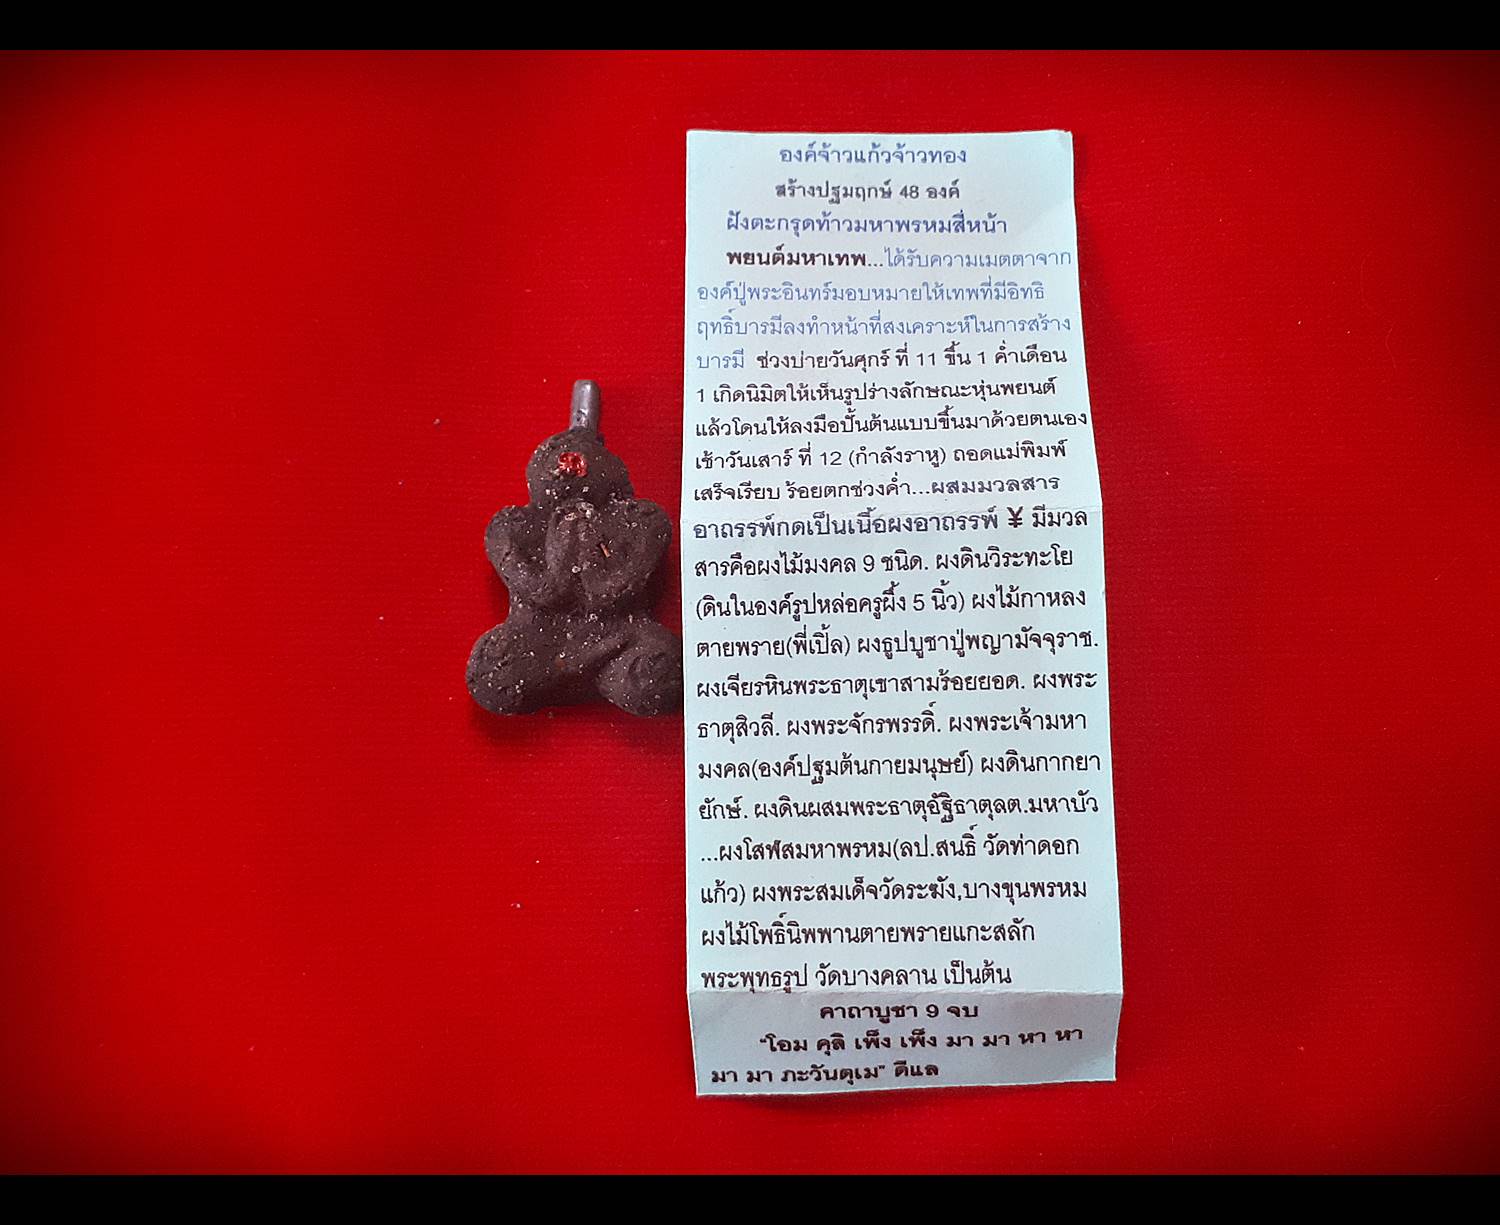 องค์จ้าวแก้วจ้าวทอง
สร้างปฐมฤกษ์ 48 องค์
ฝังตะกรุดท้าวมหาพรหมสี่หน้า
พยนต์มหาเทพ...ได้รับความเมตตาจาก
องค์ปู่พระอินทร์มอบหมายให้เทพที่มีอิทธิ
ฤทธิ์บารมีลงทำหน้าที่สงเคราะห์ในการสร้าง
บารมี ช่วงบ่ายวันศุกร์ ที่ 11 ขึ้น 1 ค่ำเดือน
1 เกิดนิมิตให้เห็นรูปร่างลักษณะหุ่นพยนต์
แล้วโดนให้ลงมือปั้นต้นแบบขึ้นมาด้วยตนเอง
เช้าวันเสาร์ ที่ 12 (กำลังราหู) ถอดแม่พิมพ์
เสร็จเรียบ ร้อยตกช่วงค่ำ...ผสมมวลสาร
อาถรรพ์กดเป็นเนื้อผงอาถรรพ์ ¥ มีมวล
สารคือผงไม้มงคล 9 ชนิด. ผงดินวิระทะโย
(ดินในองค์รูปหล่อครูผึ้ง 5 นิ้ว) ผงไม้กาหลง
ตายพราย(พี่เปิ้ล) ผงธูปบูชาปู่พญามัจจุราช.
ผงเจียรหินพระธาตุเขาสามร้อยยอด. ผงพระ
ธาตุสิวลี. ผงพระจักรพรรดิ์. ผงพระเจ้ามหา
มงคล(องค์ปฐมต้นกายมนุษย์) ผงดินกากยา
ยักษ์. ผงดินผสมพระธาตุอัฐิธาตุลต.มหาบัว
...ผงโสฬสมหาพรหม(ลป.สนธิ์ วัดท่าดอก
แก้ว) ผงพระสมเด็จวัดระฆัง,บางขุนพรหม
ผงไม้โพธิ์นิพพานตายพรายแกะสลัก
พระพุทธรูป วัดบางคลาน เป็นต้น
คาถาบูชา 9 จบ
"โอม คุลิ เพ็ง เพ็ง มา มา หา หา
มา มา ภะวันตุเม" ดีแล